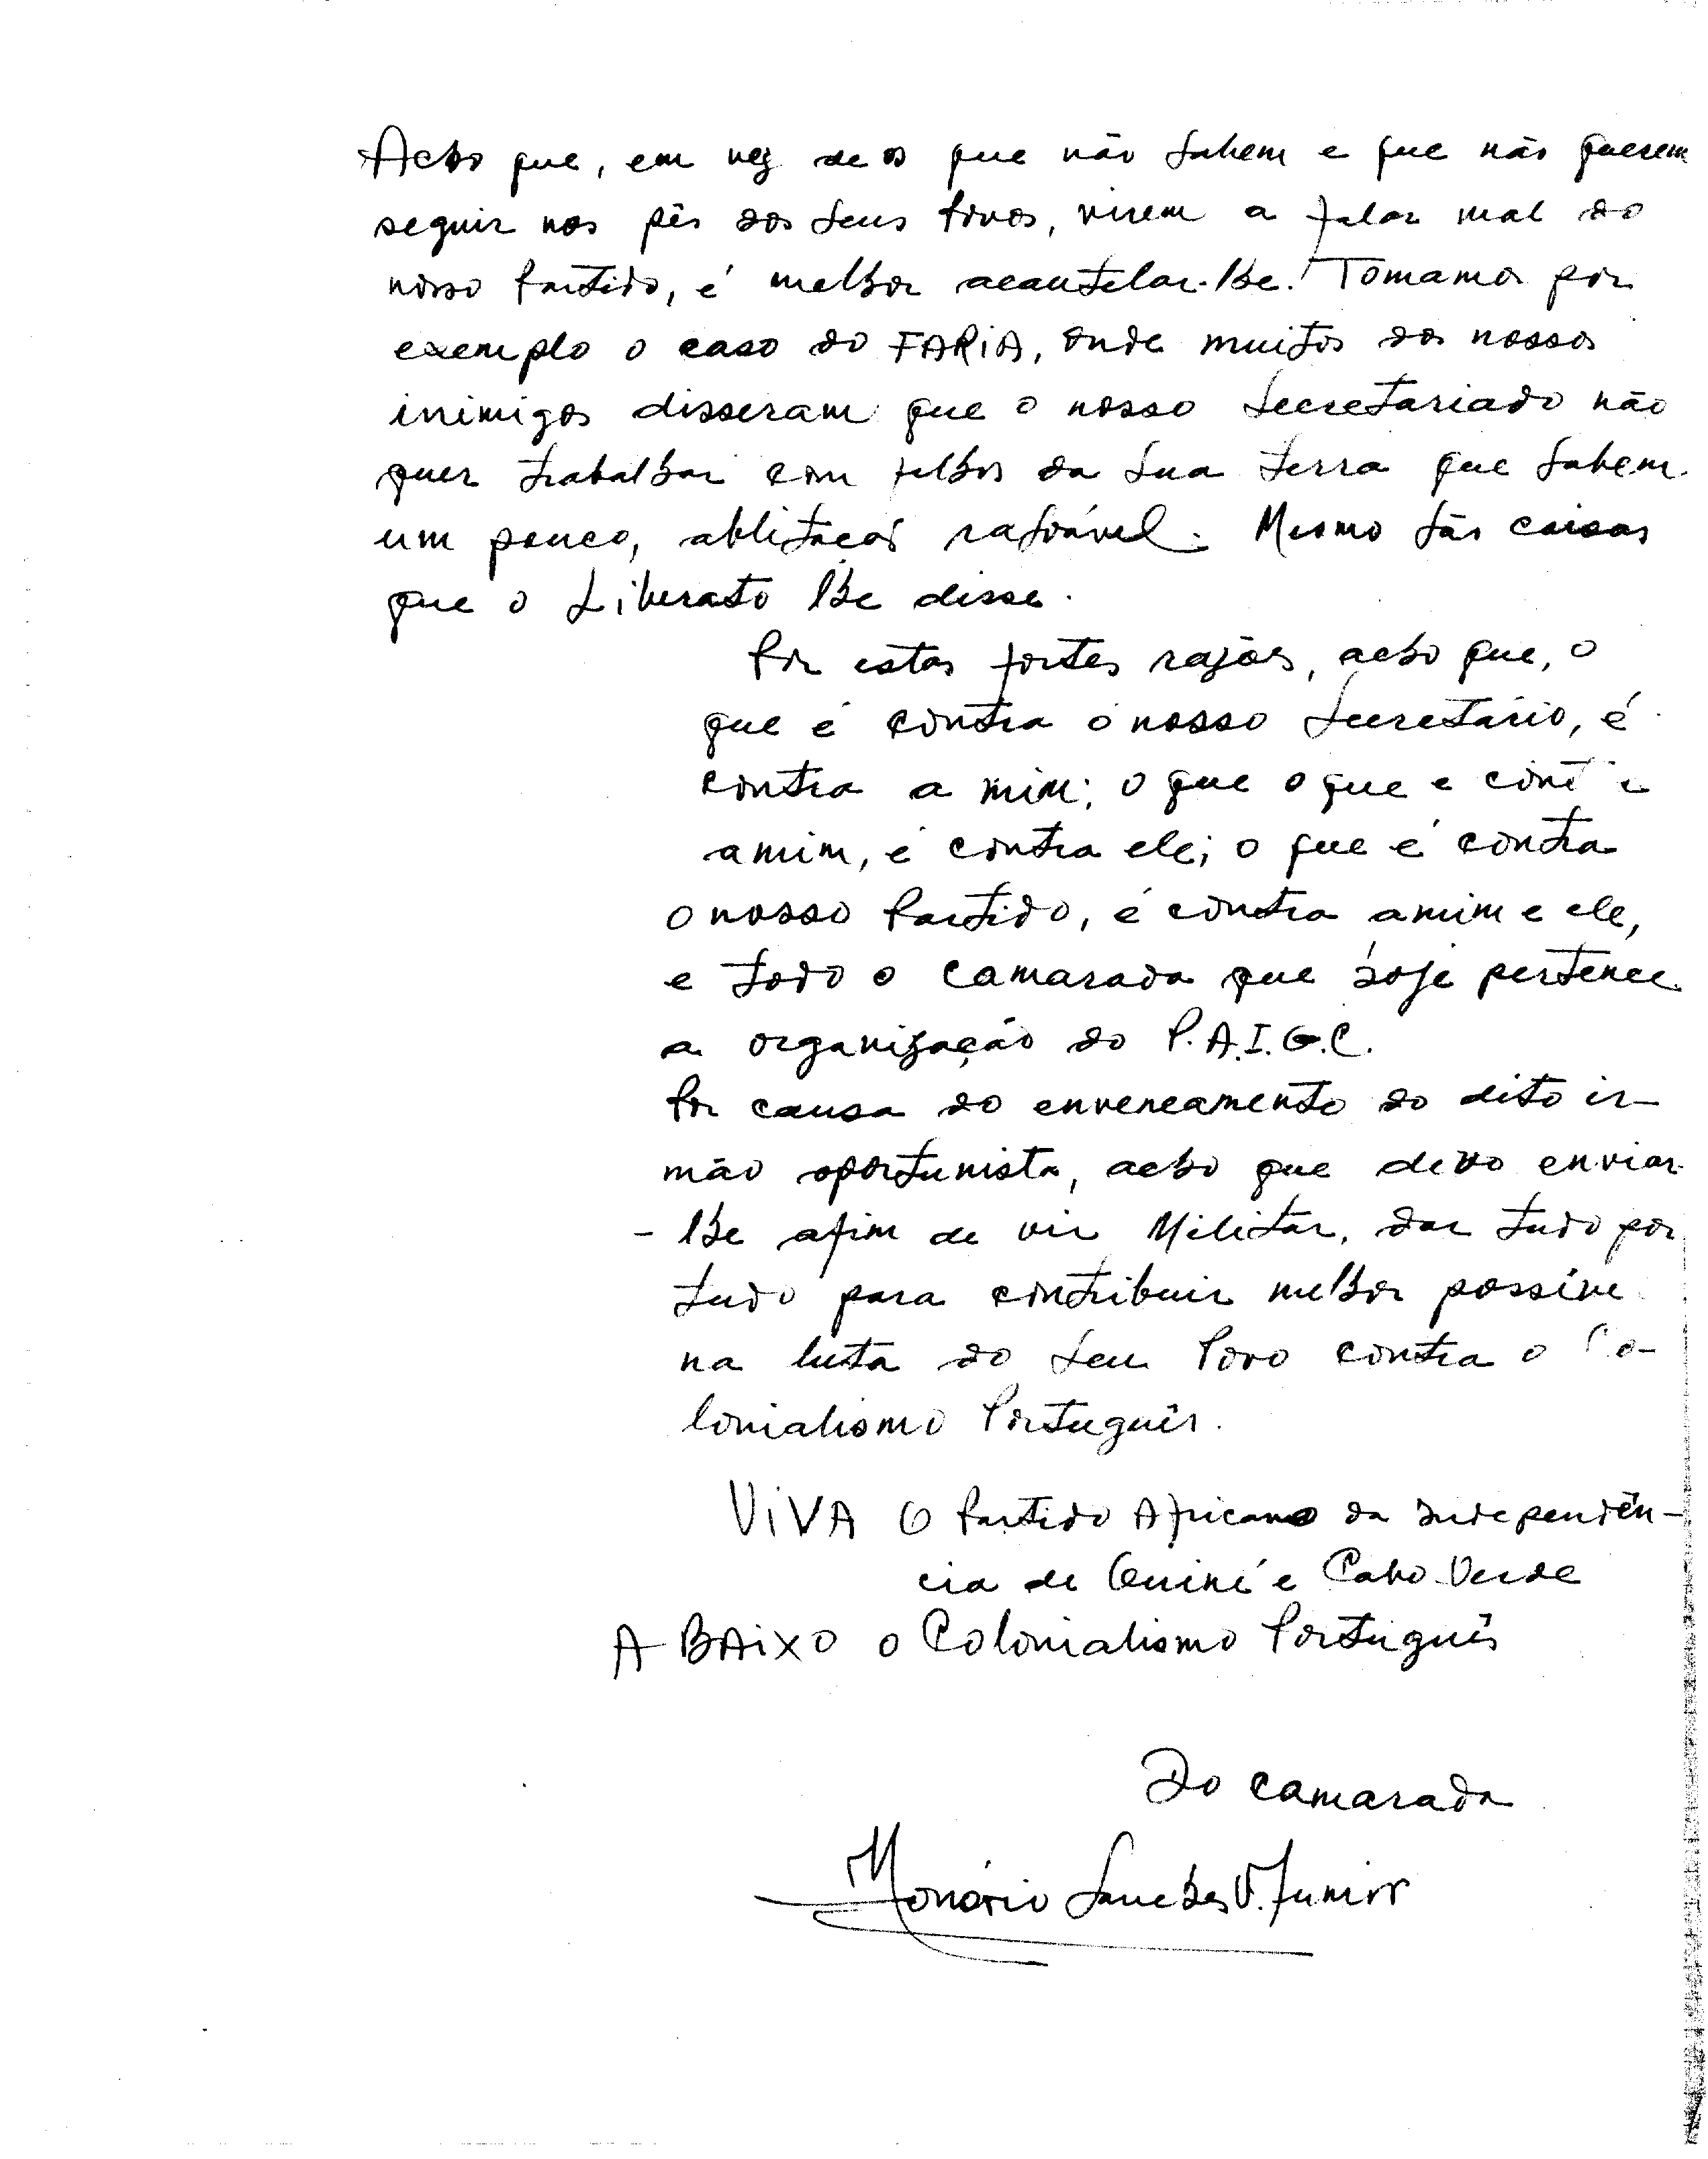 Acho que, em vez de os que não sabem e que não querem
seguir nos pés dos seus Povos, virem a falar mal do
nosso Partido, é melhor acautelar-lhe! Tomamos por
exemplo o caso do FARIA, onde muitos dos nossos
inimigos disseram que o nosso Secretariado não
quer trabalhar com filhos da sua terra que sabem
um pouco, ablitaços Mesmo sãs coisas
que o Liberato lhe disse.
Por estas fortes razões, acho que, o
que é contra o nosso Secretário, é
contra a mim; o que o que e
amim, é contra ele; o que é contra
o nosso Partido, é contra amim e ele,
e todo o camarada que hoje pertence
a organização do P.A.I.G.C.
Por causa do enveneamento do dito ir-
mão oportunista, acho que devo enviar-
-lhe afim de vir Militar, dar tudo por
tudo para contribuir melhor possive
na luta do seu Povo contra o Co-
lonialismo Português.
ViVA O Partido Africano da Independên-
cia de Guiné e Cabo-Verde
ABAiXO o Colonialismo Português
Do camarada
Honório Sanches V. Junior